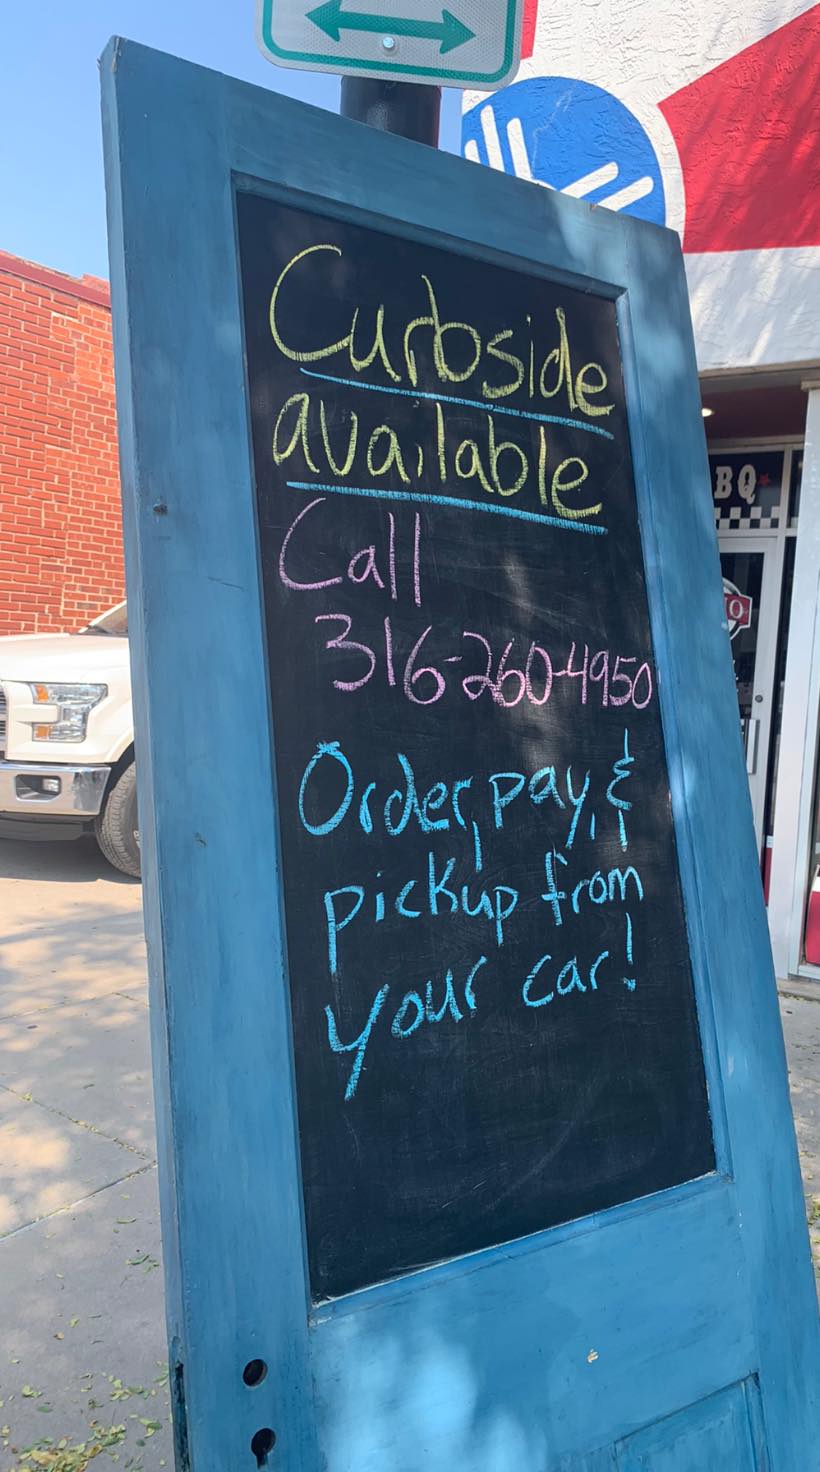 Curbside
available
Call
316-260-4950
Order, pay, &
pickup from
your car!
BQ